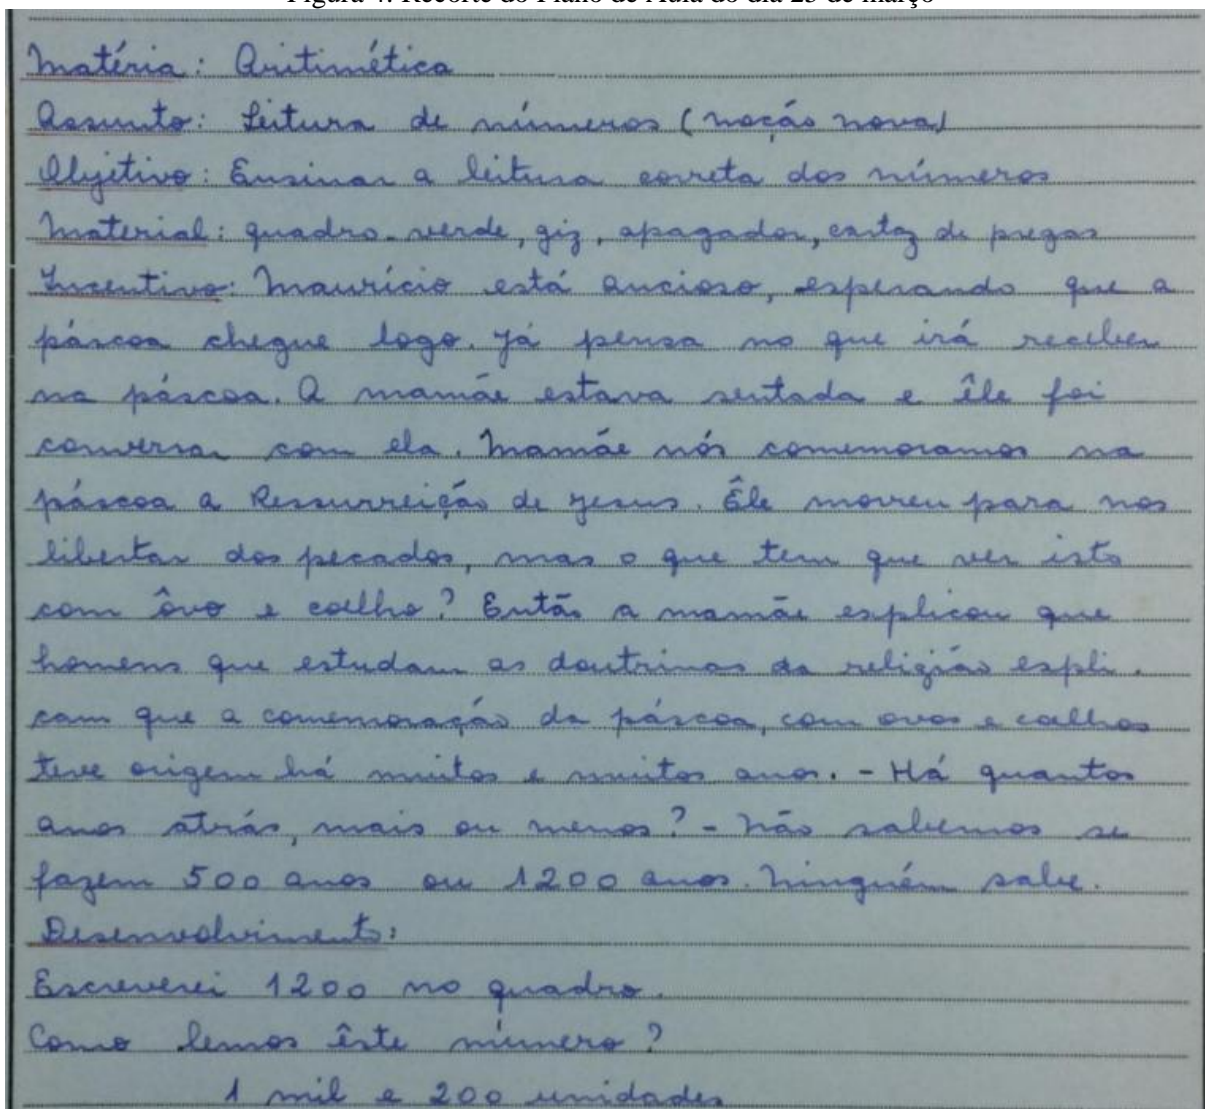 Figura 4: Recorte do Plano de Aula do dia 25 de março
Matéria: Aritimética
Assunto: Leitura de números (noção nova)
Objetivo: Ensinar a leitura correta dos números
Material: quadro-verde, giz, apagador, cartaz de pregas
Incentivo: Maurício está ancioso, esperando que a
páscoa chegue logo. Já pensa no que irá receber
na páscoa. A mamãe estava sentada e êle foi
conversar com ela. Mamãe nós comemoramos na
páscoa a Ressurreição de Jesus. Êle morreu para nos
libertar dos pecados, mas o que tem que ver isto
com ôvo e coelho? Então a mamãe explicou que
homens que estudam as doutrinas da religião expli-
cam que a comemoração da páscoa, com ovos e coelhos
teve origem há muitos e muitos anos. - Há quantos
anos atrás, mais ou menos? - Não sabemos se
fazem 500 anos ou 1200 anos. Ninguém sabe.
Desenvolvimento:
Escreverei 1200 no quadro.
Como lemos êste número?
1 mil e 200 unidades